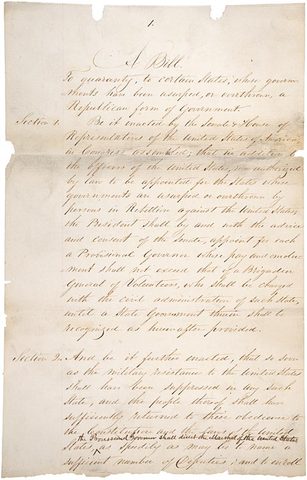 1
A Bill
To guaranty, to certain States, whose govern-
ments have been usurped, or overthrown, a
Republican form of Government.
Section 1. Be it enacted by the Senate & House of
Representatives of the United States of America
in Congress assembled; that in addition to
the officers of the United States, now authorized
by law to be appointed for the States whose
governments are usurped or overthrown by
persons in Rebellion against the United States,
the President shall by and with the advice
and consent of the Senate, appoint for each
a Provisional Governor whose pay and emolu-
ment shall not exceed that of a Brigadier
General of Volunteers, who shall be charged
with the civil administration of such State,
until a State Government therein shall be
recognized as hereinafter provided.
Section 2. And be it further enacted, that so soon
as the military resistance to the United States
shall have been suppressed in any such
State, and the people thereof shall have
sufficiently returned to their obedience to
the Constitution and the laws of the United
the Provisional Governor shall direct the Marshal of the United States
States as speedily as may be to name a
sufficient number of Deputies; and to enroll